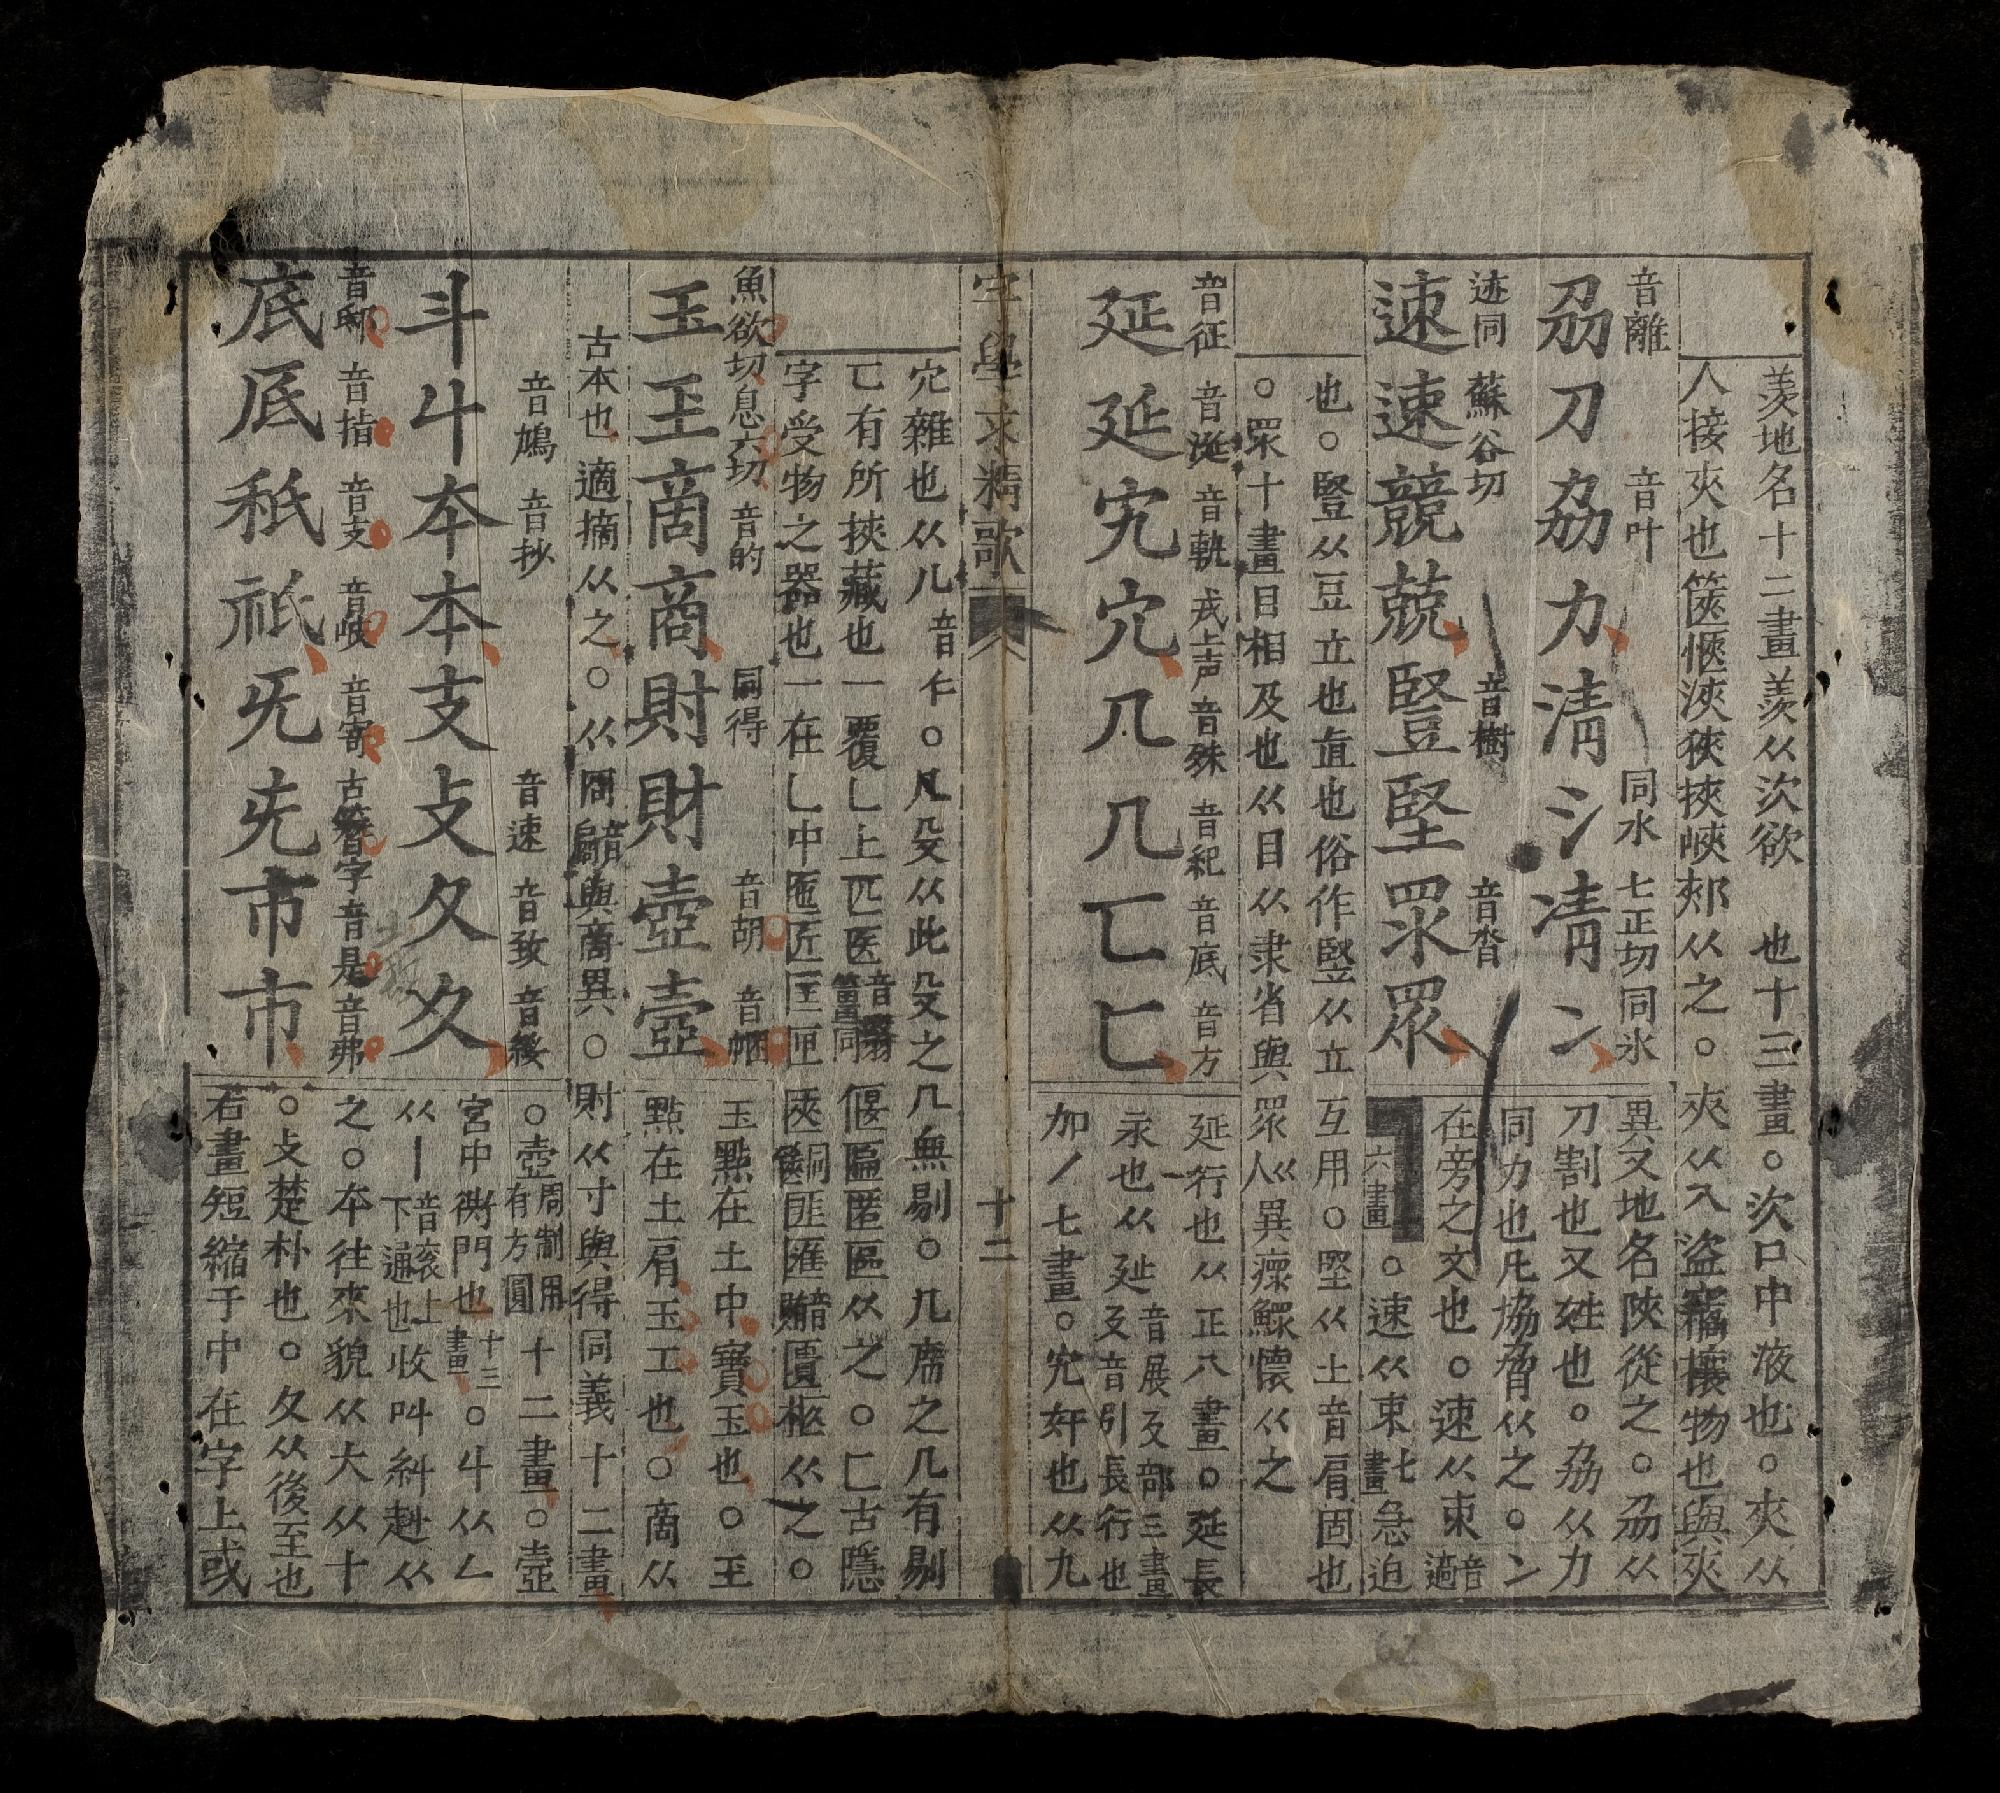 羨地名十二畫羨从㳄欲也十三畫。㳄口中液也。夾从
人接夾也篋愜浹狹挾峽郟从之。㚒从入盜竊褱物也與夾
音離 音叶 同水 七正切 同氷
刕刀劦力清氵凊冫
異又地名陝從之。刕从
刀割也又姓也。劦从力
同力也凡協脅从之。冫
迹同 蘇谷切 音樹 音沓
速競兢豎堅眔眾
在旁之文也。速从朿音
六畫。速从束七畫急迫
也。豎从豆立也直也俗作竪从立互用。堅从土音肩固也
。眾十畫目相及也从目从隶省與眾人从異瘝鰥懷从之
音征 音涎 音軌 戎上声 音殊 音祀 音底 音方
延延宄宂几几匸匚
延行也从正八畫。延長
永也从㢟音展廴部三畫廴音引長行也
加丿七畫。宄奸也从九
字學求精歌
十二
宂雜也从儿音仁。凡殳从此殳之几無剔。几席之几有剔
匸有所挾藏也一覆乚上匹医偃匾匿區从之。匚古隱
字受物之器也一在乚中匜匠匡匣匧匪匯匱柩从之。
魚欲切 息六切 音的 同得 音胡 音悃
玉王啇商財壺壼
玉點在土中寶玉也。玉
點在土肩玉工也。啇从
古本也適摘从之。从冏與啇異。財从寸與得同義十二畫
音鳩 音抄 音速 音致 音綏
斗丩夲本支攴夂夊
。壺周制用有方圓十二畫。壼
宮中衖門也十三畫。丩从乚
从丨音滾上下通也收叫糾赳从
之。夲往來貌从大从十
。攴楚朴也。夂从後至也
音邸 音指 音支 音岐 音寄 古簪字 音是 音弗
底厎秖祇旡先市巿
若畫短縮于中在字上或